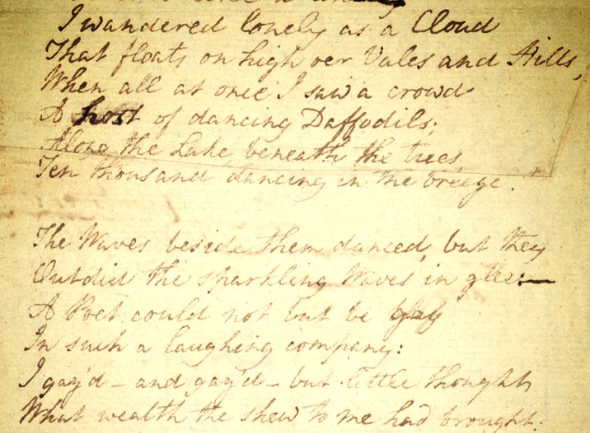 I wandered lonely as a Cloud
That floats on high oer Vales and Hills,
When all at once I saw a crowd
A host of dancing Daffodils;
Along the Lake, beneath the trees,
Ten thousand dancing in the breeze.
The Waves beside them danced, but they
Outdid the sparkling Waves in glee:—
A Poet could not but be gay
In such a laughing company:
I gaz'd – and gaz'd – but little thought
What wealth the shew to me had brought: